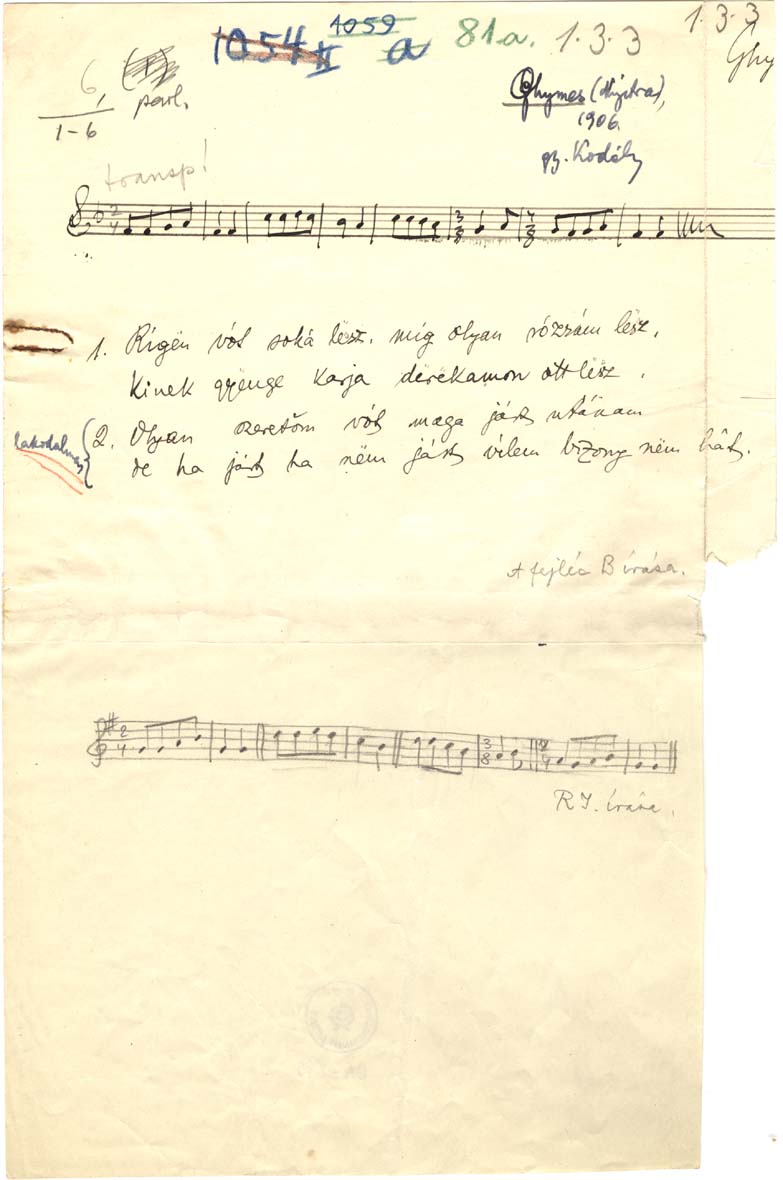 1059
1054 II a 81a. 1.3.3
1.3.3
Ghy
6,
1-6
parl.
Ghymes (Nyitra),
1906.
gy. Kodály
transp!
2/4 3/8 2/4
1. Rígën vót soká lësz, míg olyan rózsám lësz,
Kinek gyënge karja derekamon ott lësz.
lakodalmas
2. Olyan szeretőm vót maga járt utánam
de ha járt ha nëm járt vélem bizony nëm hált.
A fejléc B írása.
2/4 3/8 2/4
R I. írása.